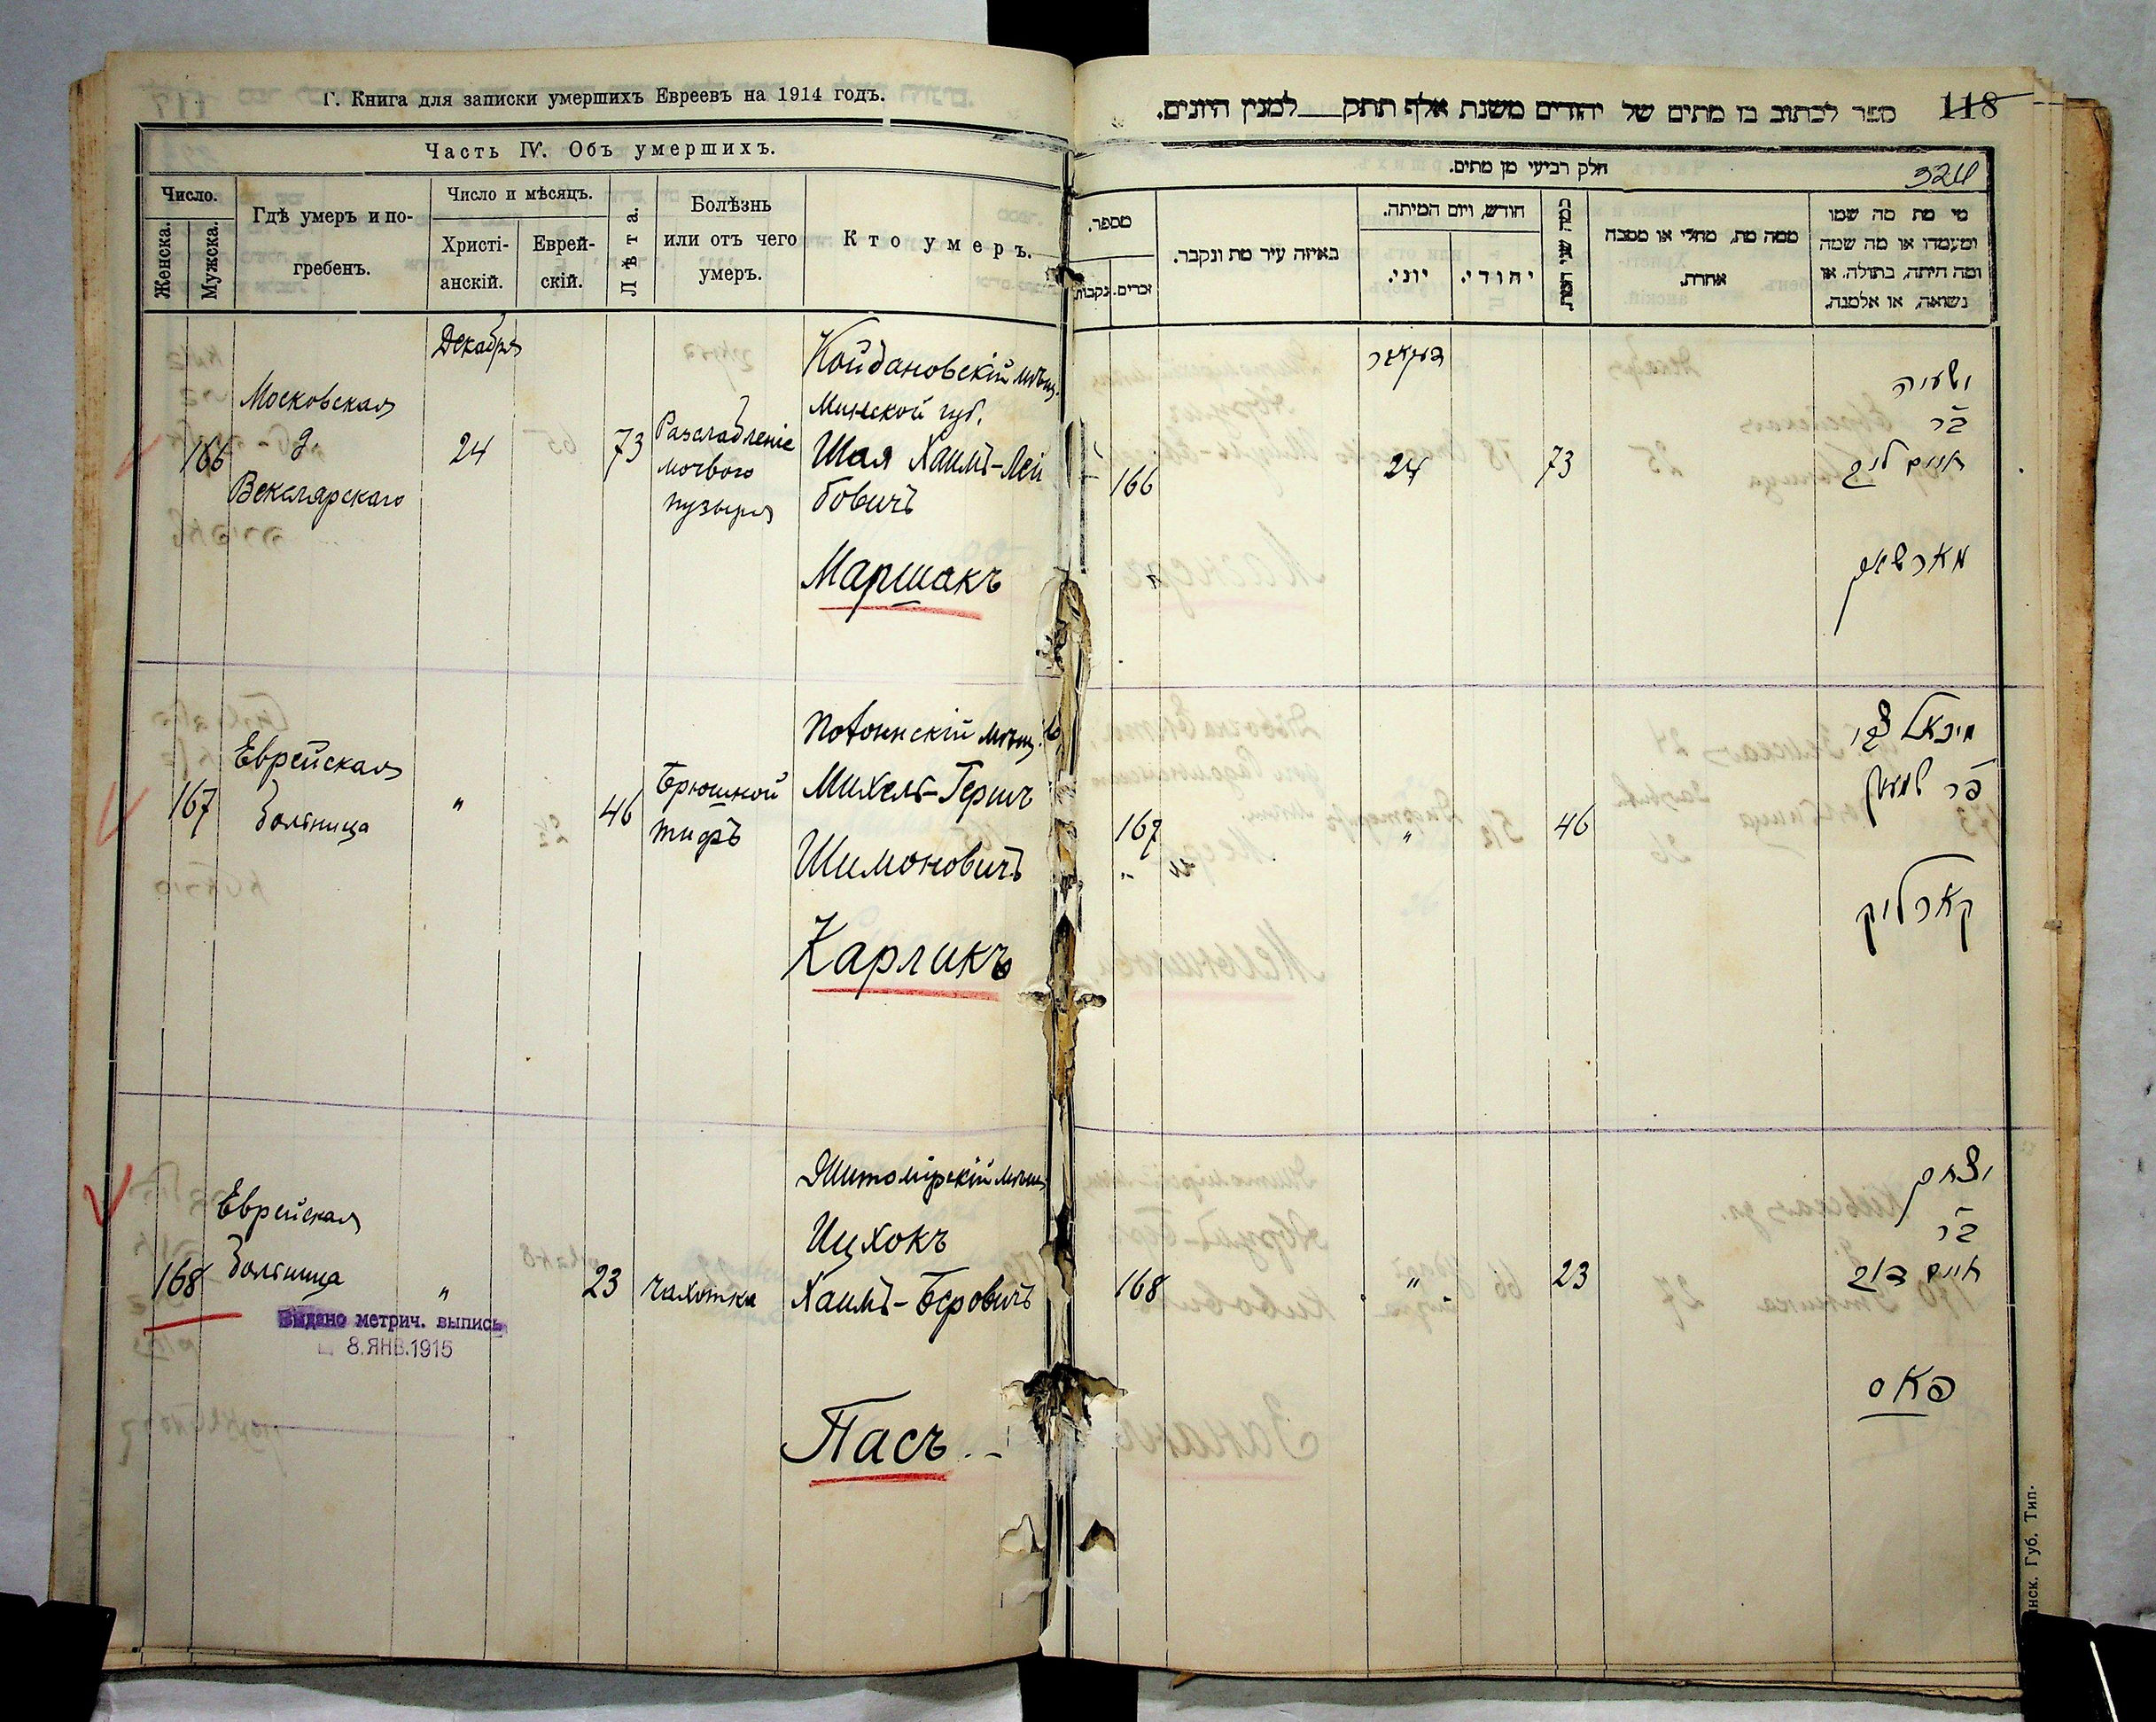 Г. Книга для записки умершихъ Евреевъ на 1914 годъ.
Часть IV. Объ умершихъ.
Число.
Женска.
Мужска.
Гдѣ умеръ и по-
гребенъ.
Число и мѣсяцъ.
Христі-
анскій.
Еврей-
скій.
Лѣта.
Болѣзнь
или отъ чего
умеръ.
Кто умеръ.
Декабря
166
Московская
д.
Векслярскаго
24
73
Разслабленіе
мочвого
пузыря
Койдановскій мѣщ.
Минской губ.
Шая Хаимъ-Лей
бовичъ
Маршакъ
167
Еврейская
Больница
"
46
Брюшной
тифъ
мѣщ.
Михель-Герш
Шимоновичъ
Карликъ
168
Еврейская
Больница
"
Выдано метрич. выпись
8.ЯНВ.1915
23
Чахотка
Житомірскій мѣщ.
Ицхокъ
Хаимъ-Беровичъ
Пасъ
118
ספר לכתוב בו מתים של יהודים משנת אלף תתק לטנין היונים.
324
חלק רביעי מן מתים.
מספר.
זכרים.
נקבות.
באיזה עיר מת ונקבר.
חודש, ויום המיתה.
יוני.
יהודי.
כמה שני חייו.
ממה מת, מחלי או מסבה
אחרת.
מי מת מה שמו
ומעמדו או מה שמה
ומה היתה, בתולה, או
נשואה, או אלמנה.
166
דעקאבר
24
73
ישעיה
ב״ר
חיים ליב
מארשאק
167
"
46
מיכאל צבי
ב״ר שמעון
קארליק
168
"
23
יצחק
ב״ר
חיים דוב
פאס
нск. Губ. Тип.